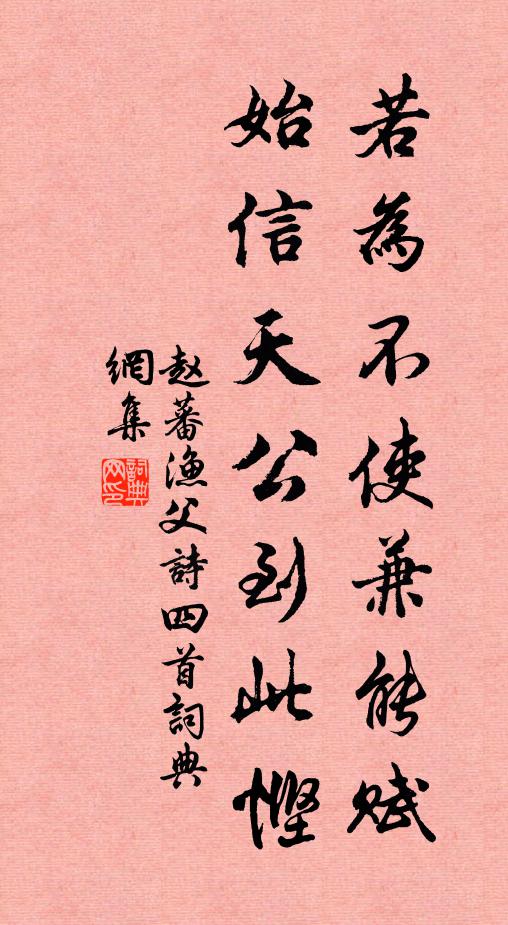 若為不使兼能賦
始信天公到此慳
赵蕃漁父詩四首詞典
網集
詞典
网印